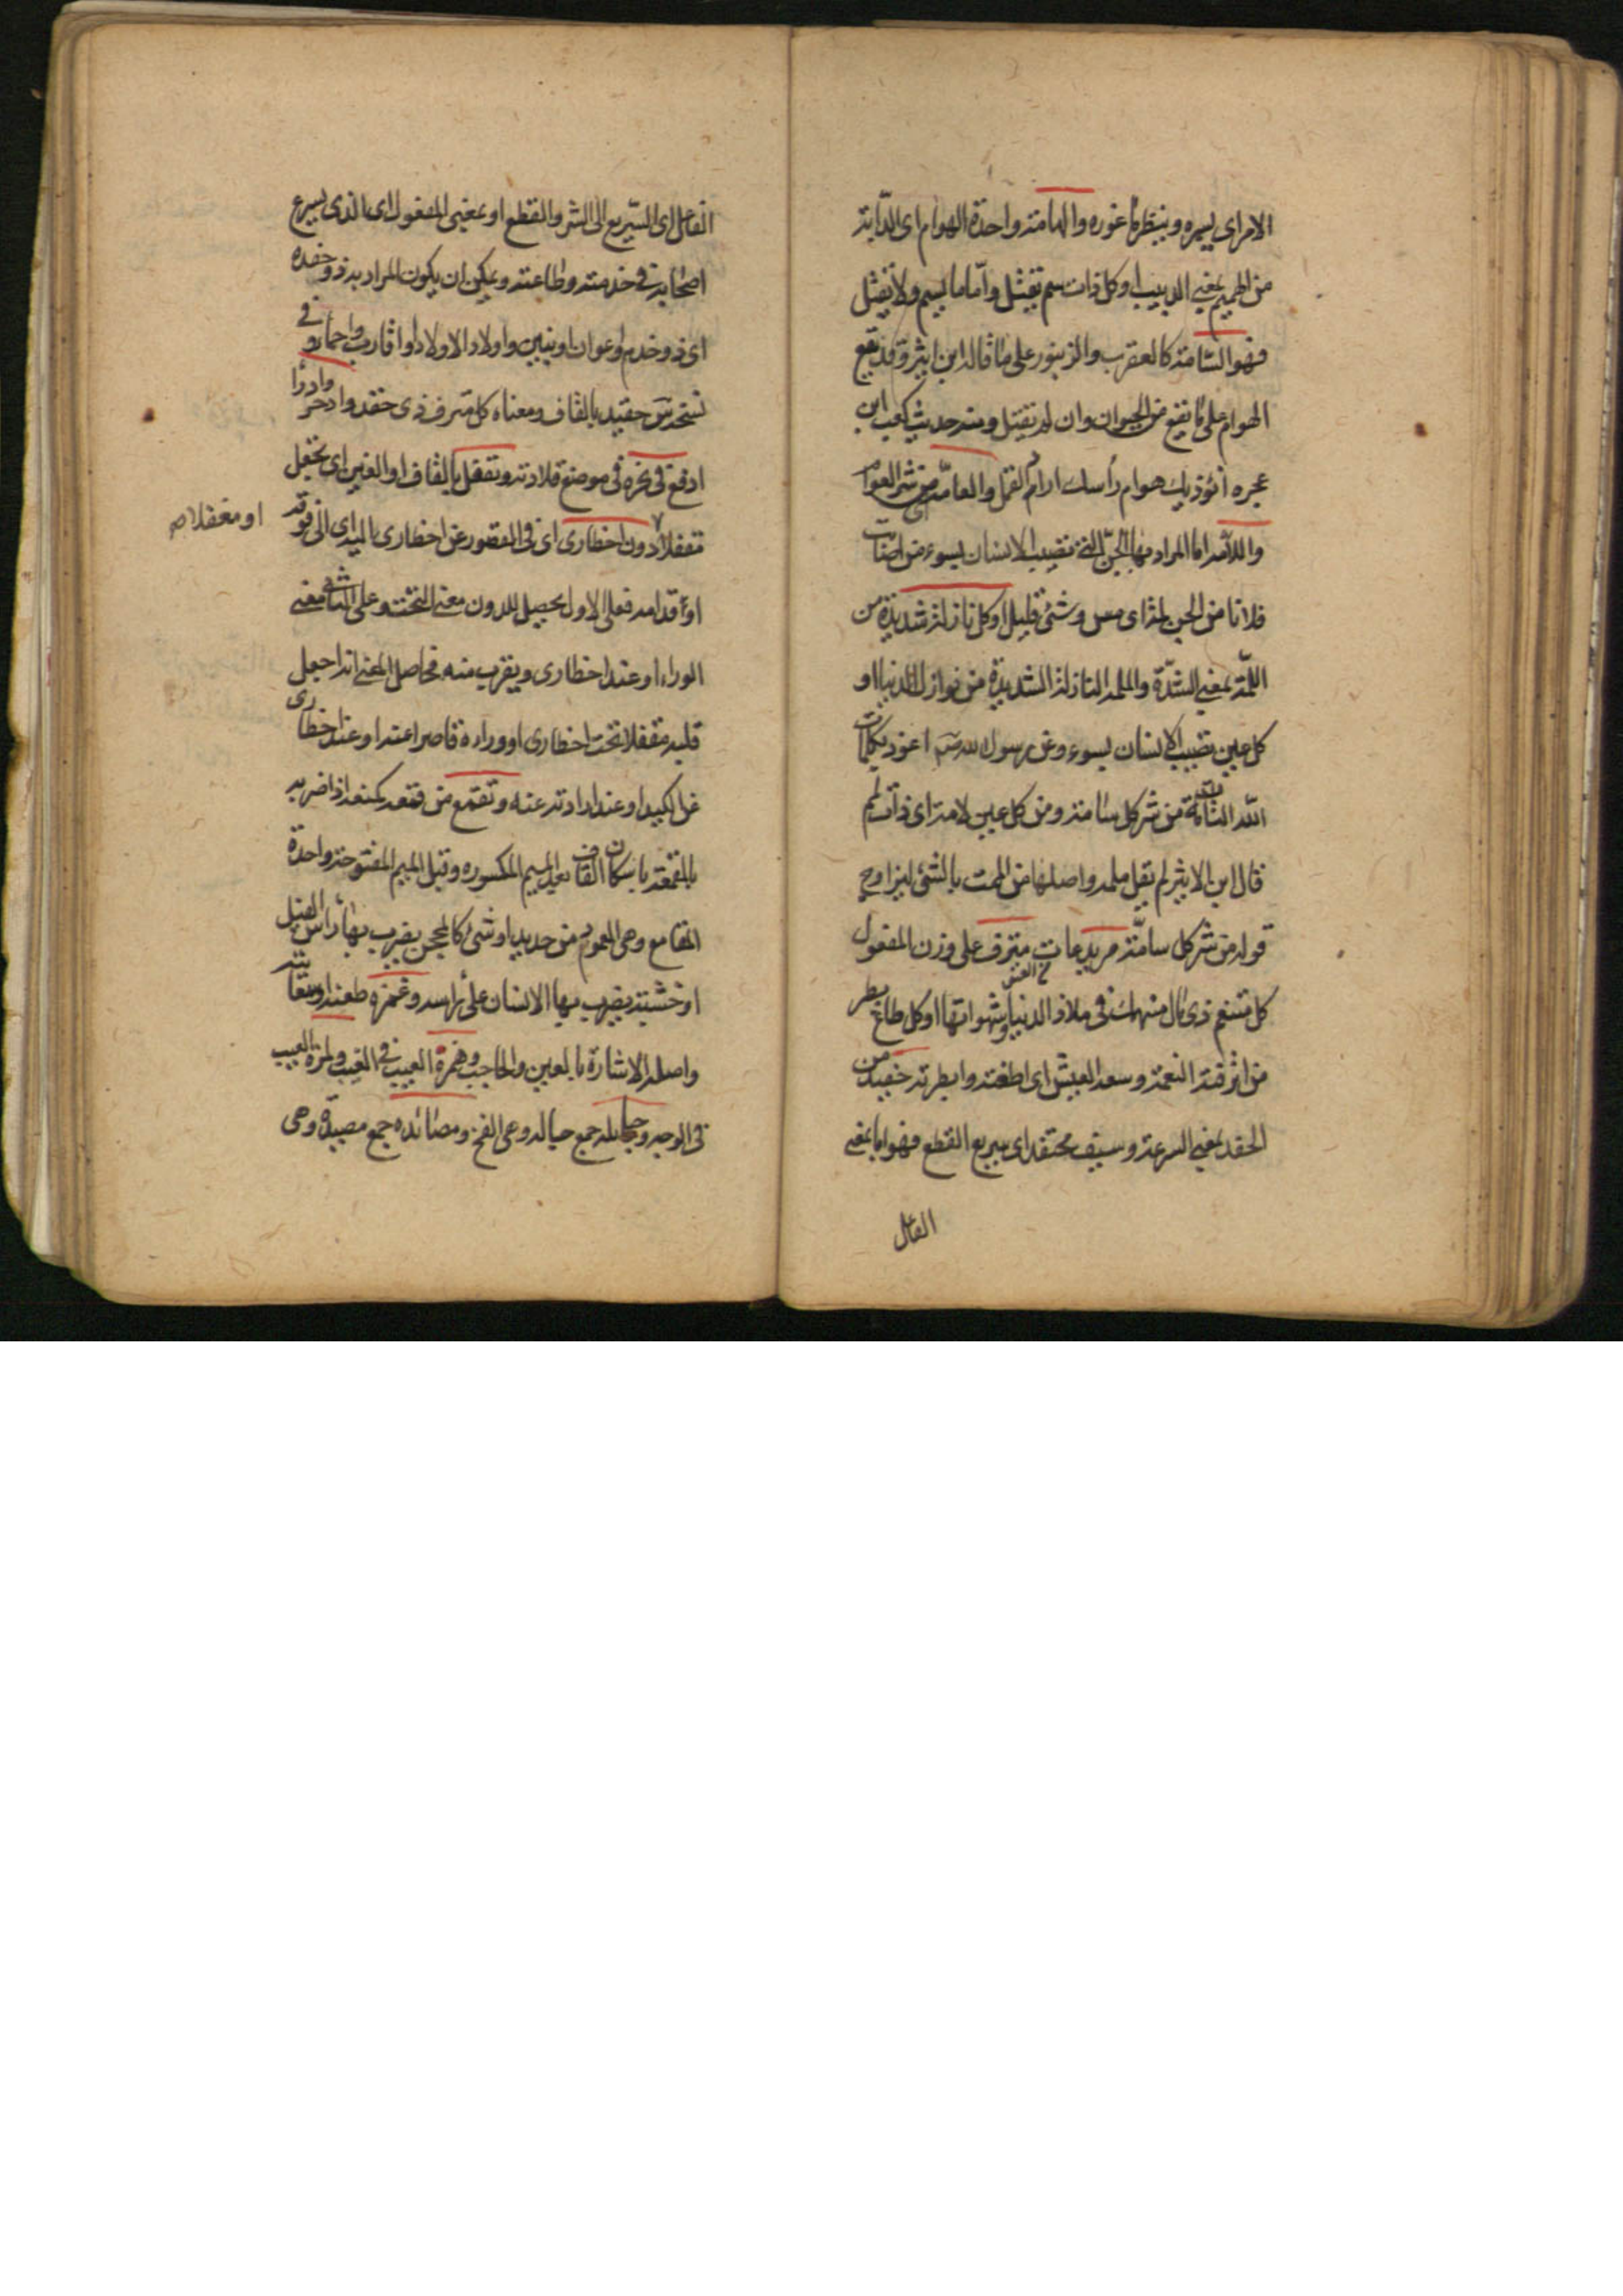 الامر اى يسبره وينظر ما غوره والهامة واحدة الهوام اى الدّابة
من الهميم بمعنى الدبيب او كل ذات سم تقتل وامّا ما يسم ولا يقتل
فهو السّامة كالعقرب والزنبور على ما قاله ابن اثير وقد يقع
الهوام على ما يقع من الحيوان وان لم يقتل ومنه حديث كعب ابن
عجره أتؤذيك هوام رأسك اراد القمل والعامّة من شر العوام
واللامّه اما المراد بها الجنّ التى تصيب الانسان بسوء من اصابت
فلانا من الجن لمة اى مس وشئ قليل او كل نازلة شديدة من
اللمّة بمعنى الشدّة والملمة النازلة الشديدة من نوازل الدنيا او
كل عين تصيب الانسان بسوء وعن رسول الله ص اعوذ بكلمات
الله التامّة من شر كل سامة ومن كل عين لامة اى ذات لمم
قال ابن الاثير لم يقل ملمه واصلها من الممت بالشئ ليزاوج
قوله من شر كل سامّة مريد عات مترف على وزن المفعول
كل متنعم ذى مال منهمك فى ملاذ الدنيا وشهواتها او كل طاغ بطر
من اترفته النعمة وسعة العيش اى اطغته وابطرته حفيد من
الحفد بمعنى السرعة وسيف محتفد اى سريع القطع فهو اما بمعنى
الفاعل
الفاعل اى السّريع الى الشر والقطع او بمعنى المفعول اى الذى يسرع
اصحابه فى خدمته وطاعته ويمكن ان يكون المراد به ذو حفده
اى ذو خدم او اعوان او بنين واولاد الاولاد او اقارب واحماء و فى
نسخة س حقيد بالقاف ومعناه كل مترف ذى حقد وادحر وادرأ
ادفع فى نحره فى موضع قلادته وتقفل بالقاف او الغين اى تجعل
مقفلا دون اخطارى اى فى القصور عن اخطارى بالميد اى الى فوقه
او مغفلا ص
او قدامه فعلى الاول يحصيل للدون معنى التحت وعلى الثانى معنى
الوراء او عند اخطارى ويقرب منه فحاصل المعنى انه اجعل
قلبه مقفلا تحت اخطارى او وراءه قاصرا عنه او عند اخطارى
عن الكيد او عند ارادته عنه وتقمع من قمعه كمنعه اذا ضربه
بالمقمعة باسكان القاف بعد الميم المكسوره وقبل الميم المفتوحة واحدة
المقامع وهى العمود من حديد او شئ كالمحجن يضرب بها رأس الفيل
او خشبة يضرب بها الانسان على رأسه وغمزه طعنه
واصله الاشارة بالعين والحاجب وهمزه العيب فى الغيب ولمزة العيب
فى الوجه وحبائله جمع حباله وهى الفخ ومصائده جمع مصيدة وهى